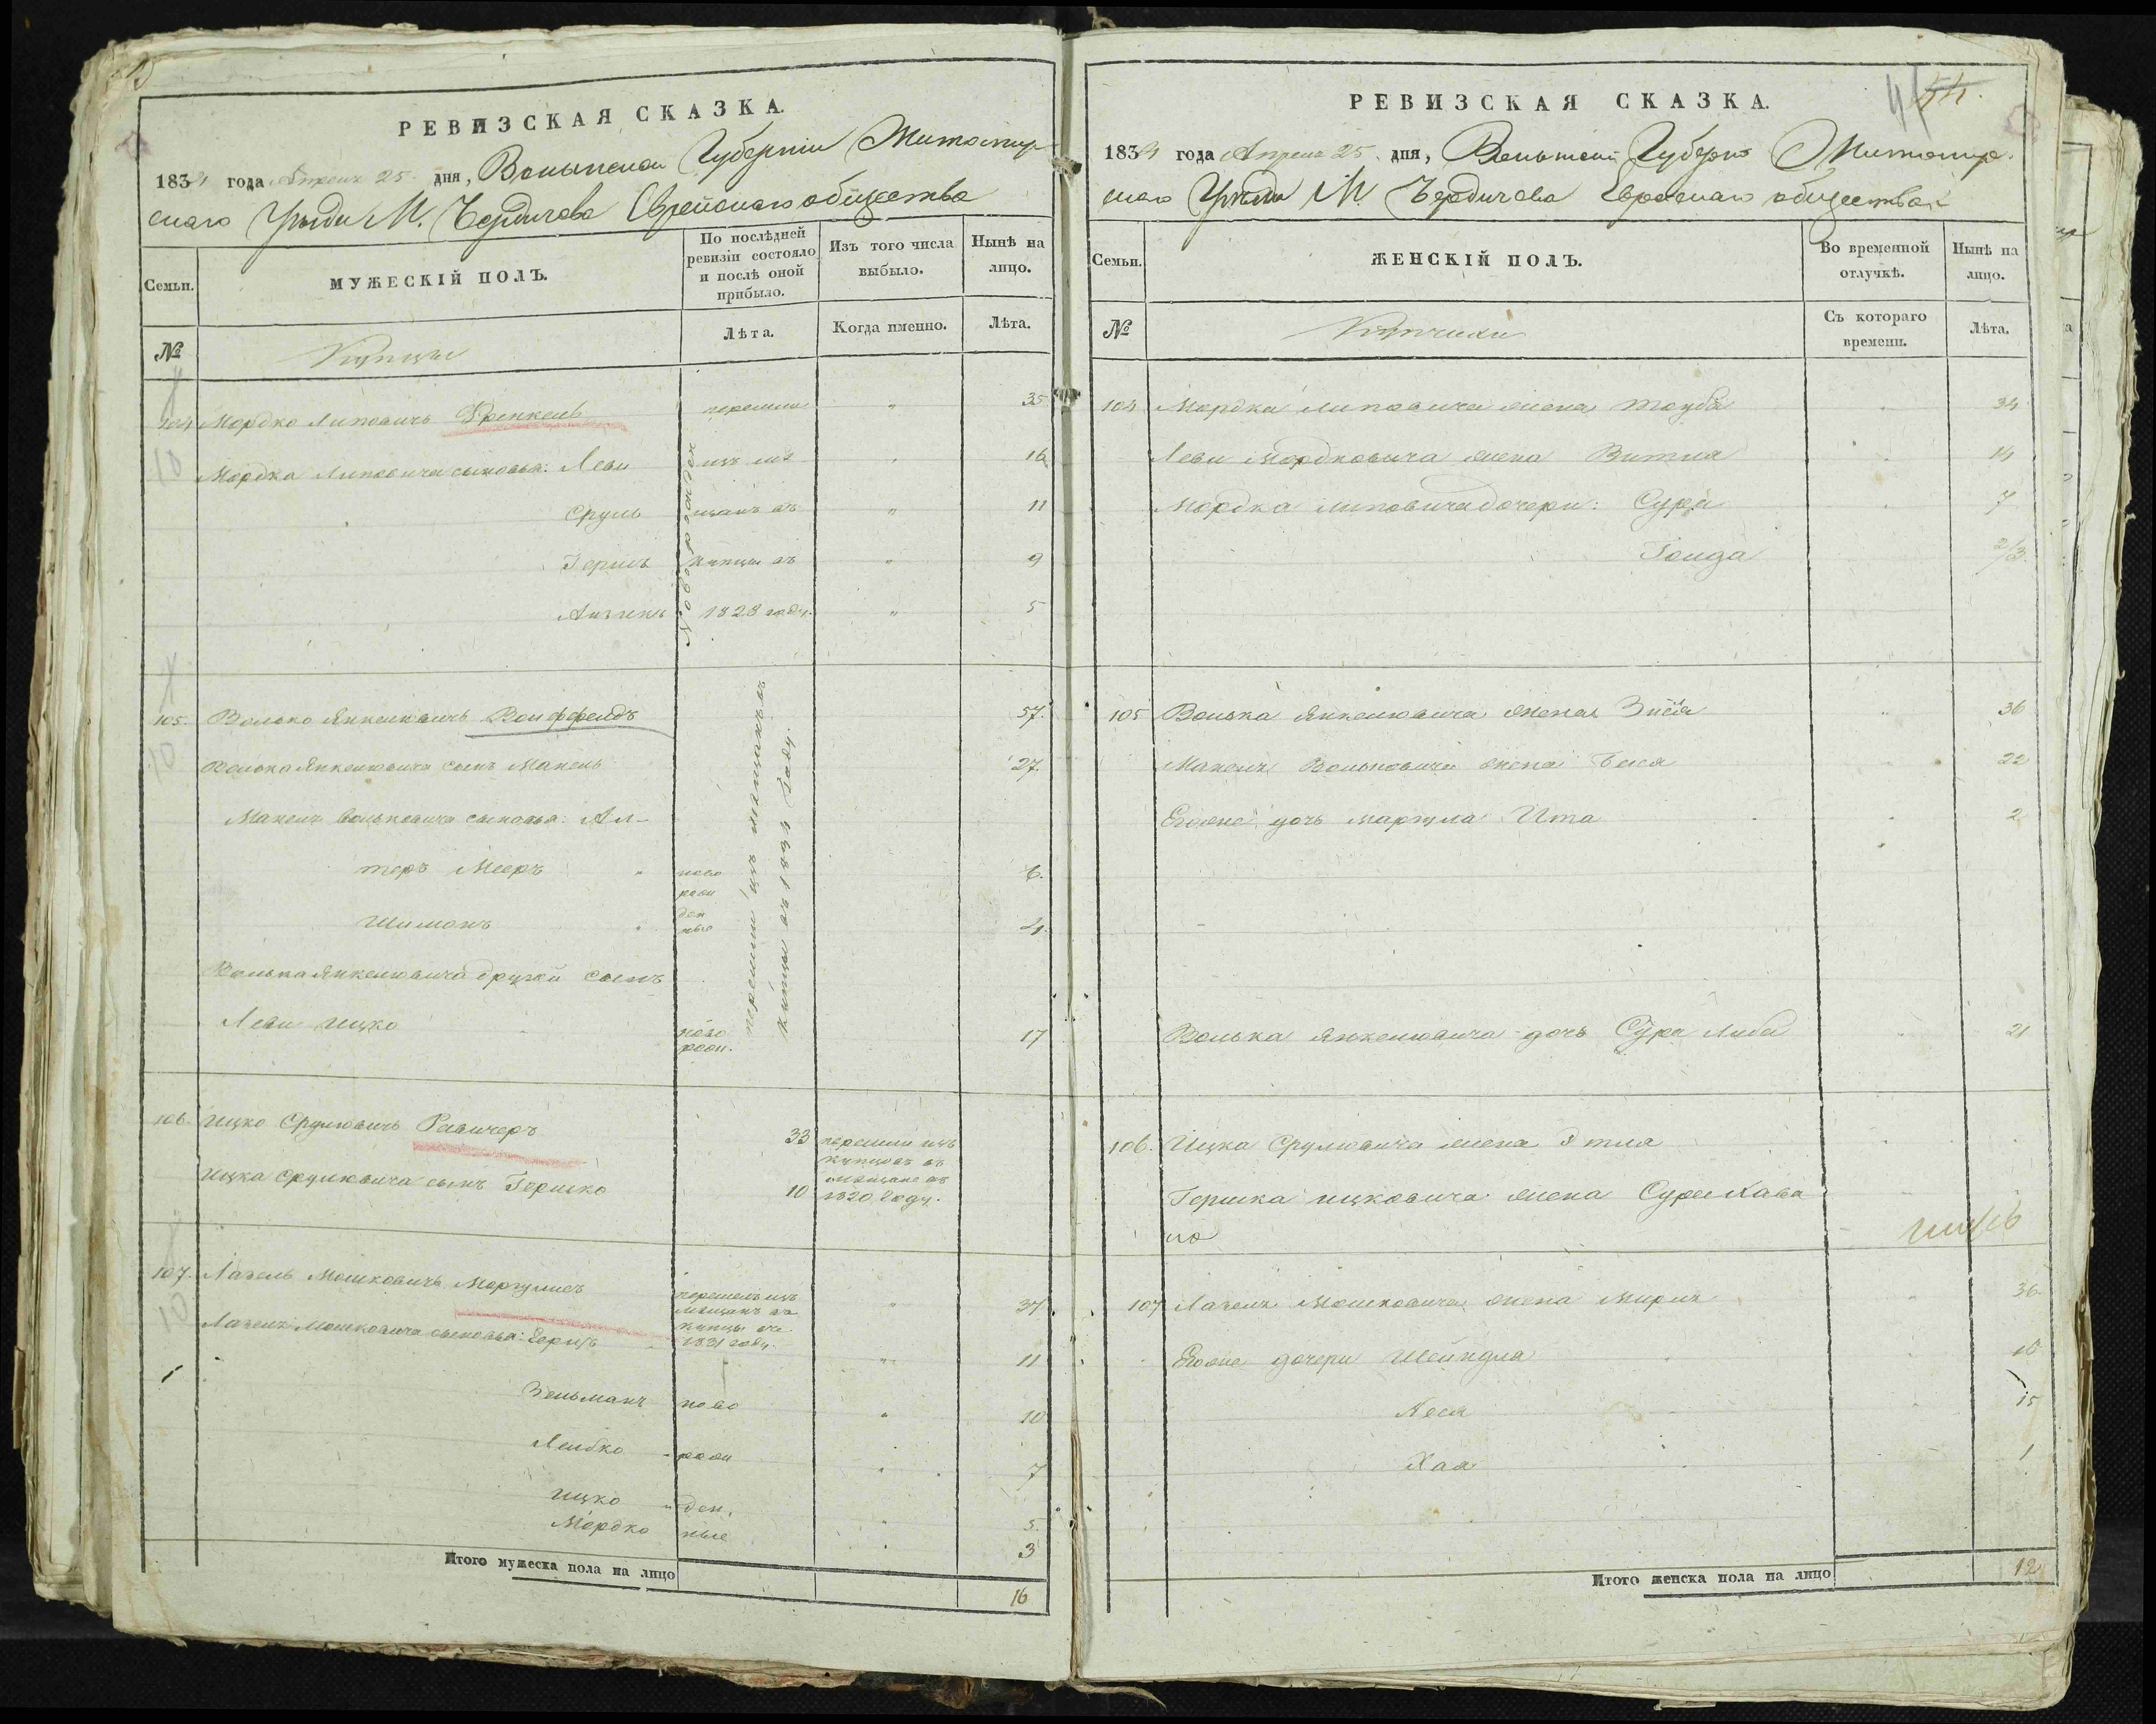 РЕВИЗСКАЯ СКАЗКА.
1834 года Апреля 25 дня, Волынской Губернии Житомир-
скаго Уезда М. Бердичева Еврейскаго общества
Семьи.
МУЖЕСКІЙ ПОЛЪ.
По послѣдней ревизіи состояло и послѣ оной прибыло.
Изъ того числа выбыло.
Нынѣ на лицо.
№
Купцы
Лѣта.
Когда именно.
Лѣта.
104 Мордко Липовичъ Френкель перешли " 35
Мордка Липовича сыновья: Леви изъ мѣ- " 16
Сруль щанъ въ " 11
Герш купцы въ " 9
5
1828 году. "
105. Волько Янкелювичъ Волффендъ 57.
Волька Янкелювича сынъ Манель 27.
перешли изъ мещанъ въ
купцы въ 1834 Году.
Манеля Вольковича сыновья: Ал-
теръ Мееръ ново 6.
рож
Шимонъ ден
ные 4.
Волька Янкелювича другой сынъ
Леви Ицко ново
рож. 17
106. Ицко Срулювичъ Равичеръ 33 перешли изъ
купцовъ въ
Ицка Срулювича сынъ Гершко 10 мещане въ
1820 Году.
107. Лазель Мошковичъ Моргулисъ перешелъ изъ " 37
мещанъ въ
Лазеля Мошковича сыновья: Берц купцы въ
1831 году. " 11
Зельманъ ново " 10
Лейбко рож " 7
Ицко ден " 5.
Мордко ные " 3
Итого мужеска пола на лицо
16
54.
РЕВИЗСКАЯ СКАЗКА.
1834 года Апреля 25 дня, Волынской Губерн Житомир-
скаго Уезда М. Бердичева Еврейскаго общества
Семьи.
ЖЕНСКІЙ ПОЛЪ.
Во временной отлучкѣ.
Нынѣ на лицо.
№
Купчихи
Съ котораго времени.
Лѣта.
104 Мордка Липовича жена Тауба 34
Леви Мордковича жена Витля 14
Мордка Липовича дочери: Сура 7
2/3
105 Волька Янкелювича жена Зися 36
Манеля Вольковича жена Бася 22
Егоже дочь Ита 2
Волька Янкелювича дочь Сура Либа 21
106. Ицка Срулювича жена Этля
Гершка Ицковича жена Сура Хава
107 Лазеля Мошковича жена Миря 36
Егоже дочери Шейндля 16
Песя 15
Хая 1
Итого женска пола на лицо
12